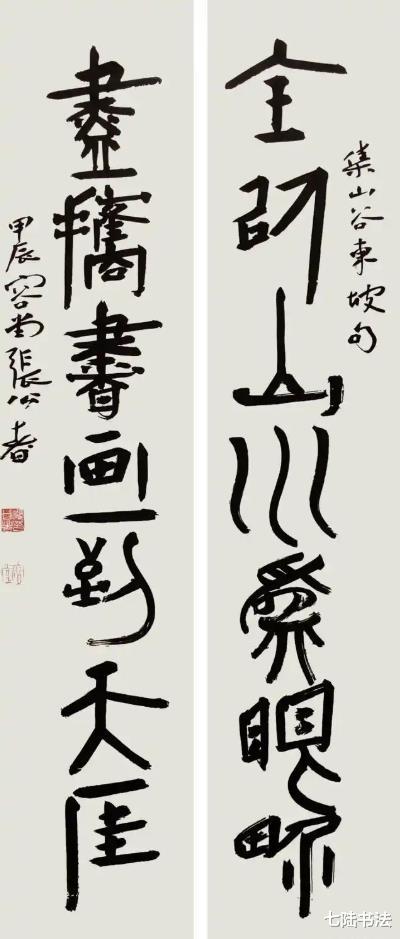 集山谷東坡句
全以山川為眼界
盡攜書畫到天涯
甲辰容堂張公者
七陆书法